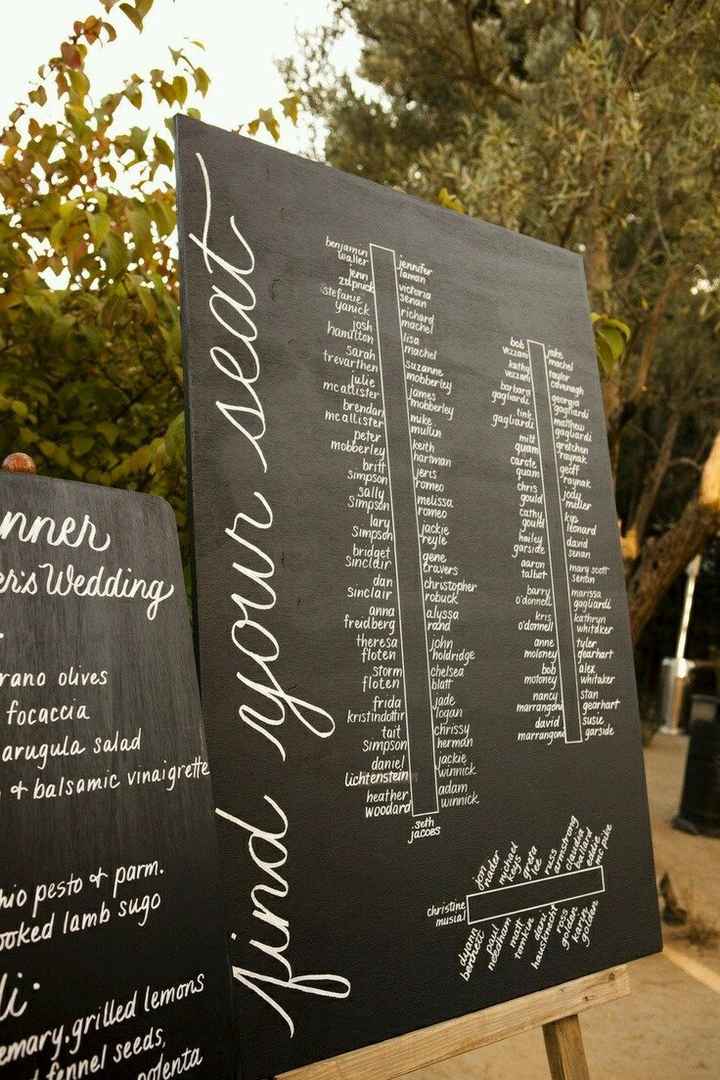 find your seat
benjamin
waller
jenn
stefanie
yanick
josh
hamilton
sarah
trevarthen
julie
mcallister
brendan
mcallister
peter
mobberley
britt
simpson
sally
simpson
lary
simpson
bridget
sinclair
dan
sinclair
anna
freidberg
theresa
floten
storm
floten
frida
kristindottir
tait
simpson
daniel
lichtenstein
heather
woodard
jennifer
laman
victoria
senan
richard
machel
lisa
machel
suzanne
mobberley
james
mobberley
mike
mullin
keith
hartman
jeris
romeo
melissa
romeo
jackie
reyle
gene
travers
christopher
robuck
alyssa
rand
john
holdridge
chelsea
blatt
jade
logan
chrissy
herman
jackie
winnick
adam
winnick
seth
jacoes
bob
vezzani
kathy
vezzani
barbara
gagliardi
tink
gagliardi
milt
quam
carole
quam
chris
gould
cathy
gould
hailey
garside
aaron
talbot
barry
o'donnell
kris
o'donnell
anne
moloney
bob
moloney
nancy
marrangoni
david
marrangoni
jake
machel
taylor
cavanagh
georgia
gagliardi
matthew
gagliardi
gretchen
raynak
geoff
raynak
jody
miller
kip
leonard
david
senan
mary scott
senan
marissa
gagliardi
kathryn
whitaker
tyler
gearhart
alex
whitaker
stan
gearhart
susie
garside
christine
musial
jon
nolder
michael
keys
greta
lee
russ
armstrong
claudia
ballard
eddie
mc pike
dyann
berthelt
paul
needham
matt
tomkin
dani
hausknecht
ross
golden
karyn
golden
nner
er's Wedding
rano olives
focaccia
arugula salad
& balsamic vinaigrette
hio pesto & parm.
ooked lamb sugo
li.
emary, grilled lemons
fennel seeds,
polenta